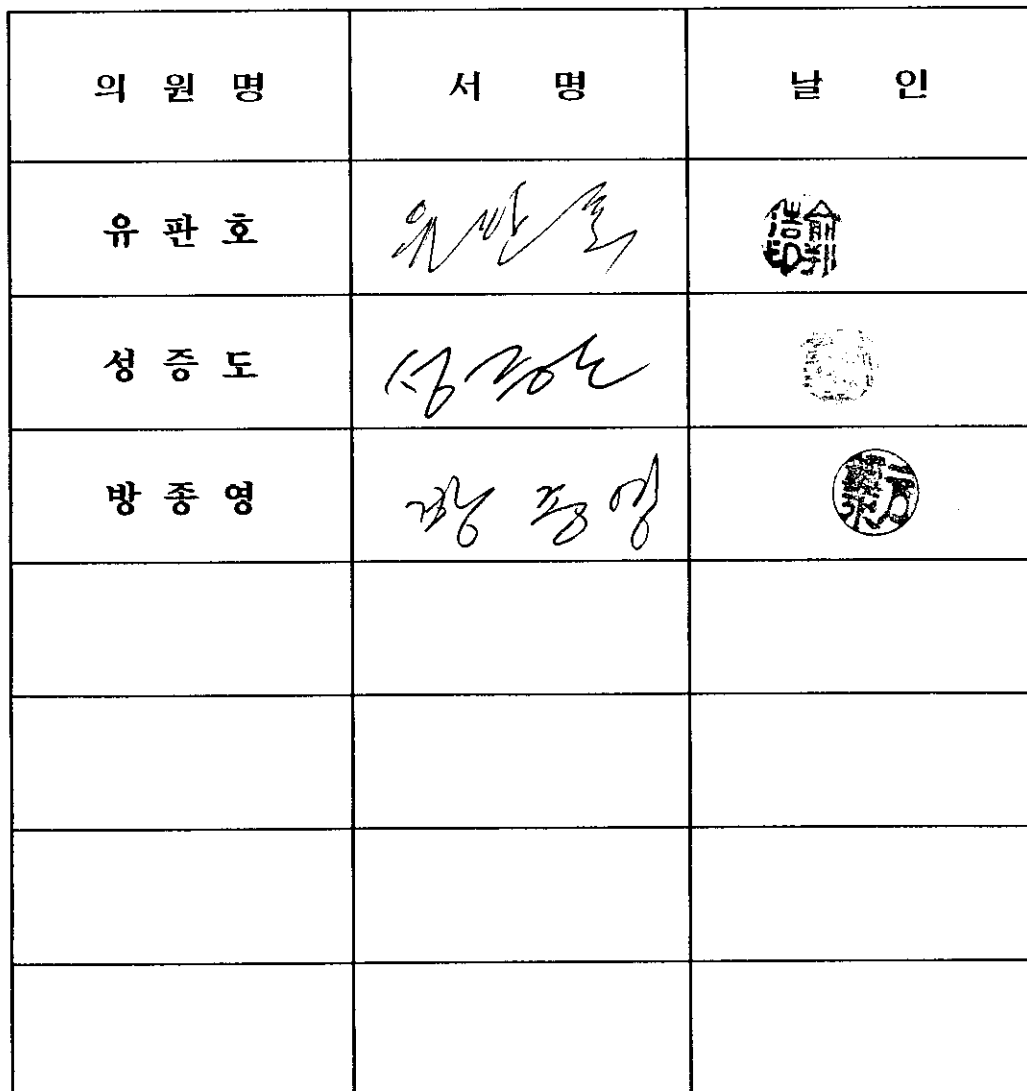 의 원 명 서 명 날 인
유 판 호 유판호
성 증 도 성증도
방 종 영 방종영